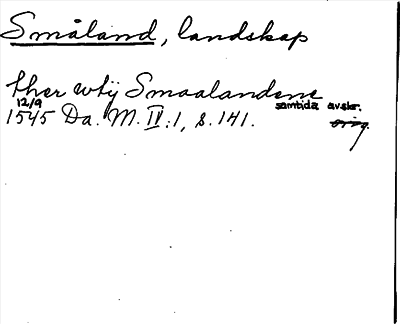 Småland, landskap
ther wtij Smaalandene
12/9 samtida avskr.
1545 Da. M. IV:1, s. 141. orig.